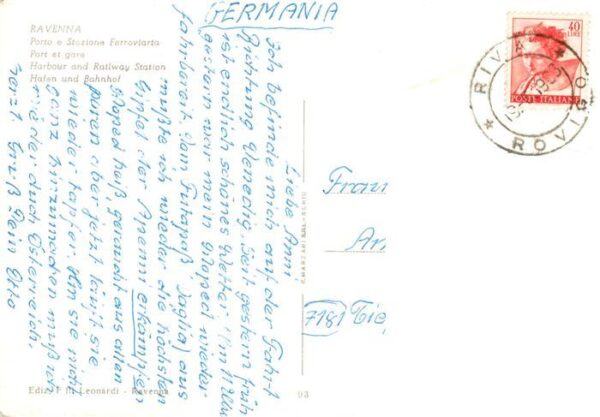 RAVENNA
Porto e Stazione Ferroviaria
Port et gare
Harbour and Railway Station
Hafen und Bahnhof
GERMANIA
40
LIRE
POSTE ITALIANE
RIVA
ROVIGO
Liebe Anni,
Ich befinde mich auf der Fahrt
Richtung Venedig. Seit gestern früh
ist endlich schönes Wetter
gestern war mein Moped wieder
fahrbereit. Vom Futapaß aus
mußte ich wieder die höchsten
Gipfel der Apenni erkämpfen
Moped heiß, geraucht aus allen
aber jetzt läuft sie
wieder tapfer. Um sie nicht
ganz hinzumachen muß ich
wieder durch Österreich.
Gruß Dein Otto
7181
C. MARZARI
Ediz. F lli Leonardi - Ravenna
93